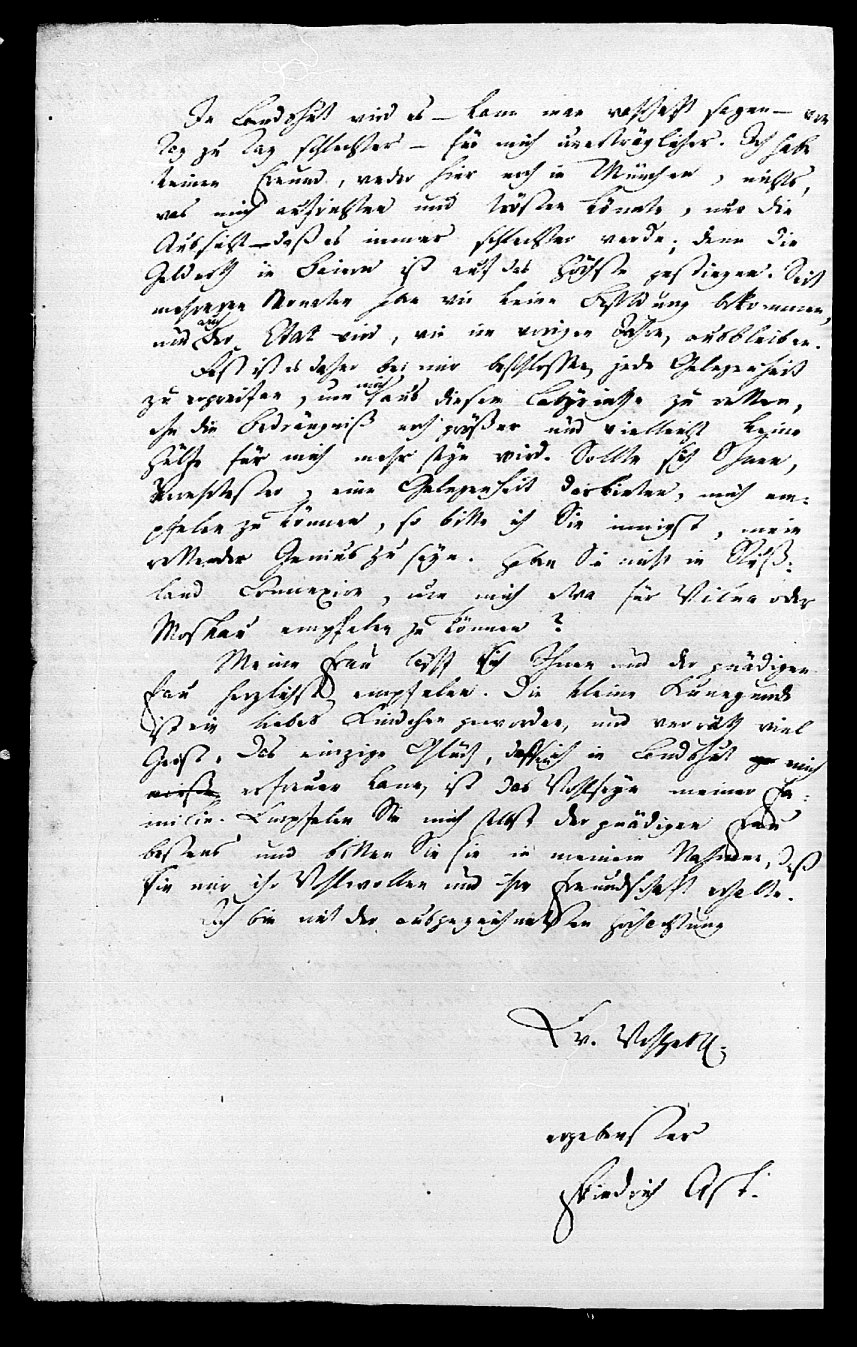 In Landshut wird es – kann man wahrhaft sagen – von
Tag zu Tag schlechter – für mich unerträglicher. Ich habe
keinen Freund, weder hier noch in München, nichts,
was mich aufrichten und trösten könnte, nur die
Aussicht – daß es immer schlechter werde; denn die
Geldnoth in Baiern ist auf das Höchste gestiegen. Seit
mehreren Monaten haben wir keine Besoldung bekommen,
und auch der Etat wird, wie im vorigen Jahre, ausbleiben.
Fest ist es daher bei mir beschlossen, jede Gelegenheit
zu ergreifen, um mich aus diesem Labyrinthe zu retten,
ehe die Bedrängniß noch größer und vielleicht keine
Hülfe für mich mehr seyn wird. Sollte sich Ihnen,
Verehrtester, eine Gelegenheit darbieten, mich em-
pfelen zu können, so bitte ich Sie innigst, mein
rettender Genius zu seyn. Haben Sie nicht in Ruß-
land Connexion, um mich etwa für Vilna oder
Moskau empfelen zu können?
Meine Frau läßt sich Ihnen und der gnädigen
Frau herzlichst empfelen. Die kleine Kunegunde
ist ein liebes Kindchen geworden, und verräth viel
Geist. Das einzige Glück, dessen ich in Landshut mich
erfreuen kann, ist das Wohlseyn meiner Fa-
milie. Empfelen Sie mich selbst der gnädigen Frau
bestens und bitten Sie sie in meinem Nahmen, daß
sie mir ihr Wohlwollen und ihre Freundschaft erhalte.
Ich bin mit der ausgezeichnetsten Hochachtung
Ew. Wohlgeb.
ergebenster
Friedrich Ast.